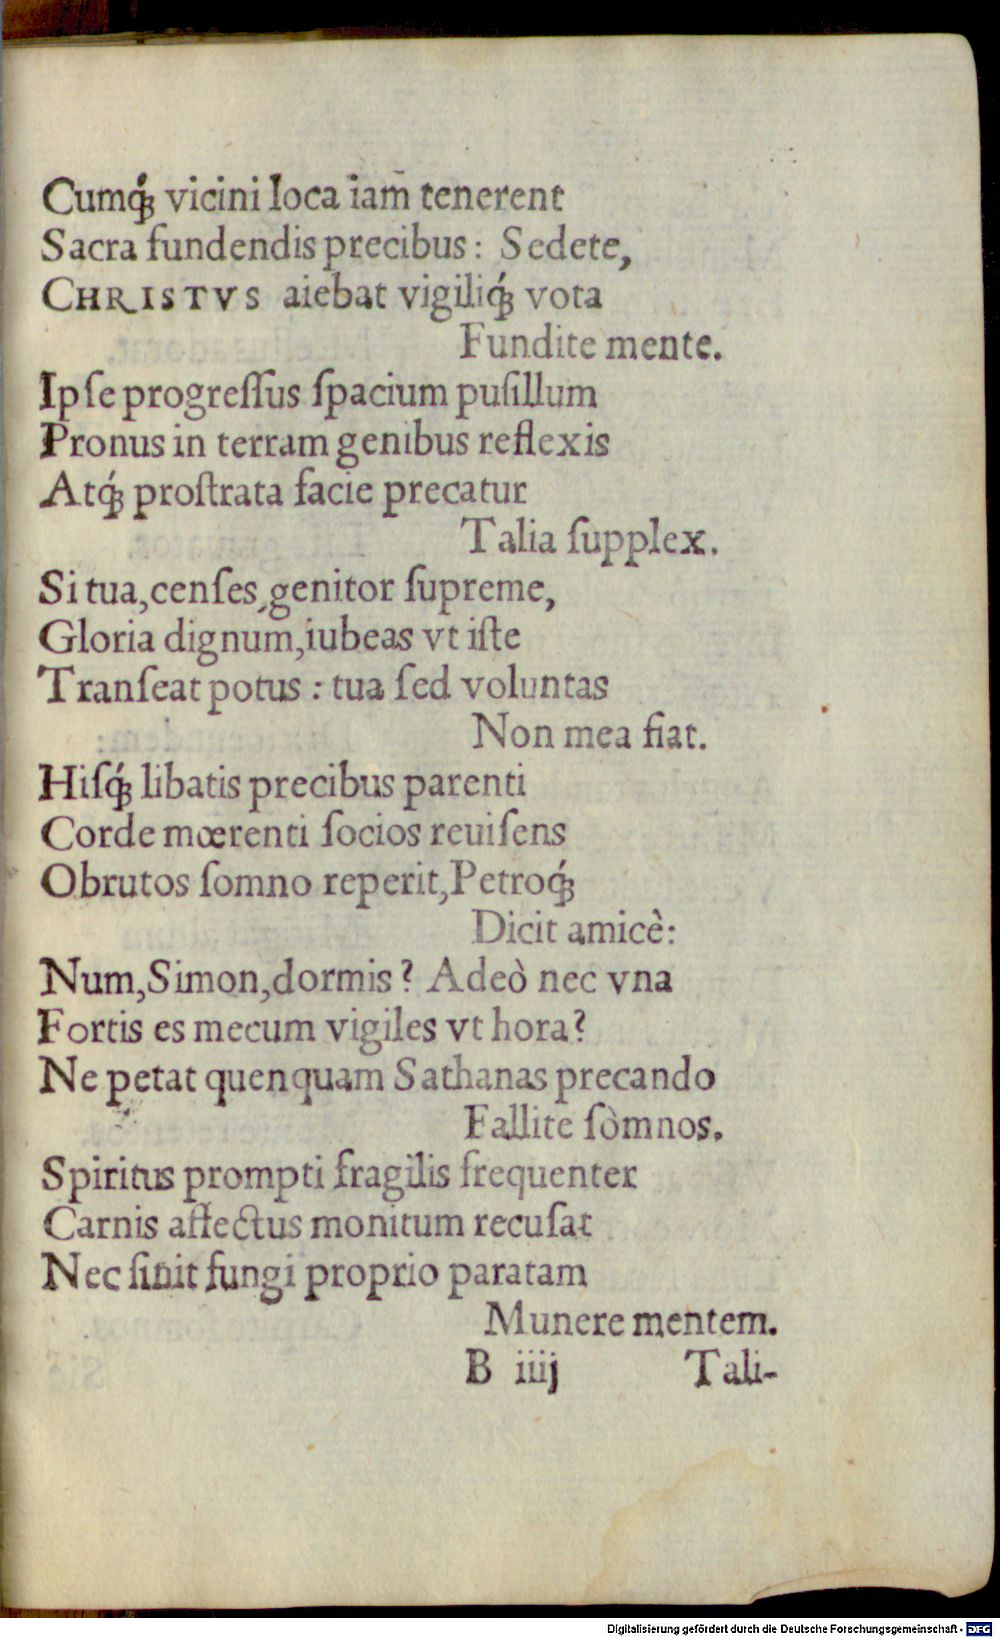 Cumq́ꝫ vicini loca iam̃ tenerent
Sacra fundendis precibus: Sedete,
CHRISTVS aiebat vigiliq́ꝫ vota
Fundite mente.
Ipſe progreſſus ſpacium puſillum
Pronus in terram genibus reflexis
Atq́ꝫ proſtrata facie precatur
Talia ſupplex.
Si tua, cenſes, genitor ſupreme,
Gloria dignum, iubeas vt iſte
Tranſeat potus: tua ſed voluntas
Non mea fiat.
Hiſq́ꝫ libatis precibus parenti
Corde mœrenti ſocios reuiſens
Obrutos ſomno reperit, Petroq́ꝫ
Dicit amicè:
Num, Simon, dormis? Adeò nec vna
Fortis es mecum vigiles vt hora?
Ne petat quenquam Sathanas precando
Fallite ſòmnos.
Spiritus prompti fragilis frequenter
Carnis affectus monitum recuſat
Nec ſinit fungi proprio paratam
Munere mentem.
B iiij Tali-
Digitalisierung gefördert durch die Deutsche Forschungsgemeinschaft - DFG